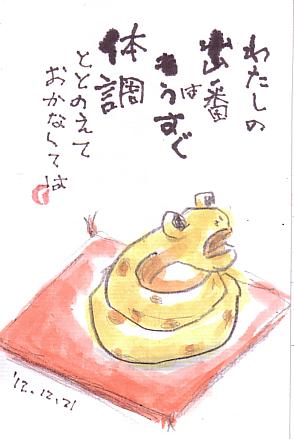 わたしの
出番は
もうすぐ
体調
ととのえて
おかなくては
'12.12.21